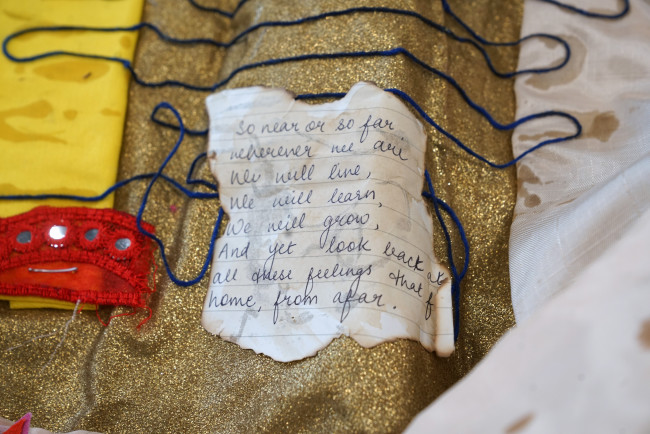 So near or so far
wherever we are
We will live,
We will learn,
We will grow,
And yet look back at
all these feelings that f
home, from afar.